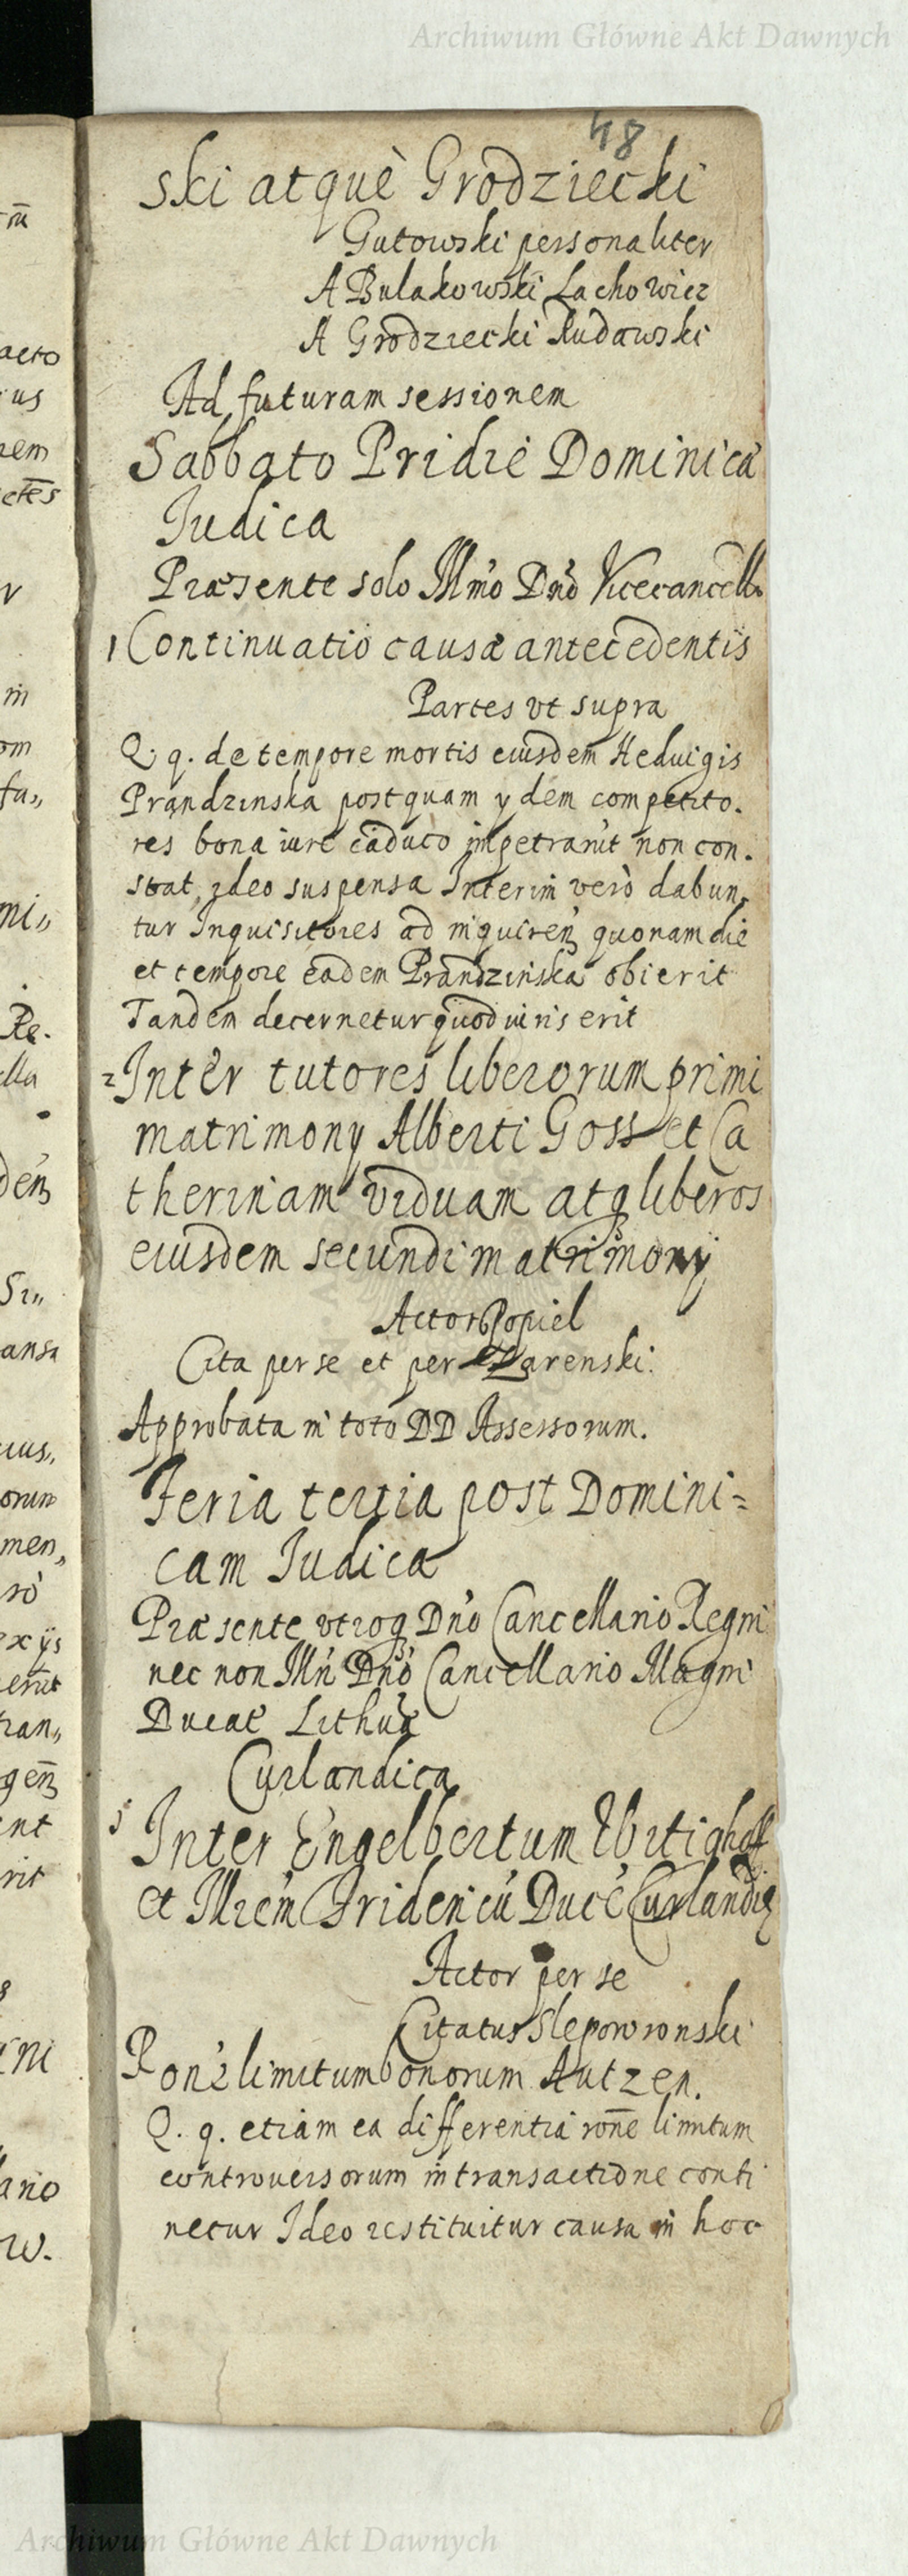 Archiwum Główne Akt Dawnych
48
ski atquè Grodziecki
Gutowski personaliter
A Bulakowski Lachowicz
A Grodziecki Rudawski
Ad futuram sessionem
Sabbato Pridie Dominica
Iudica
Præsente solo Illmo Dno Vicecancell.
1 Continuatio causæ antecedentis
Partes vt supra
Q. q. de tempore mortis eiusdem Heduigis
Prandzinska postquam ydem competito.
res bona iure caduco impetrarut non con.
stat, ideo suspensa Interim verò dabun,
tur Inquisitores ad inquiren quonam die
et tempore eadem Prandzinska obierit
Tandem decernetur quod iuris erit
2 Inter tutores liberorum primi
matrimony Alberti Goss et Ca
therinam viduam atq liberos
eiusdem secundi matrimony
Actor Popiel
Cita per se et per Zarenski.
Approbata in toto DD Assessorum.
Feria tertia post Domini=
cam Iudica
Præsente vtroq Dno Cancellario Regni
nec non Illri Dno Cancellario Magni
Ducat Lithuæ
Curlandica
Inter Engelbertum
et Illrem Fridericu Ducē Curlandiæ
Actor per se
Citatus Sleporowronski
limitum bonorum Autzen.
Q. q. etiam ea differentia rone limitum
controuersorum in transactione conti
netur Ideo restituitur causa in hoc
Archiwum Główne Akt Dawnych